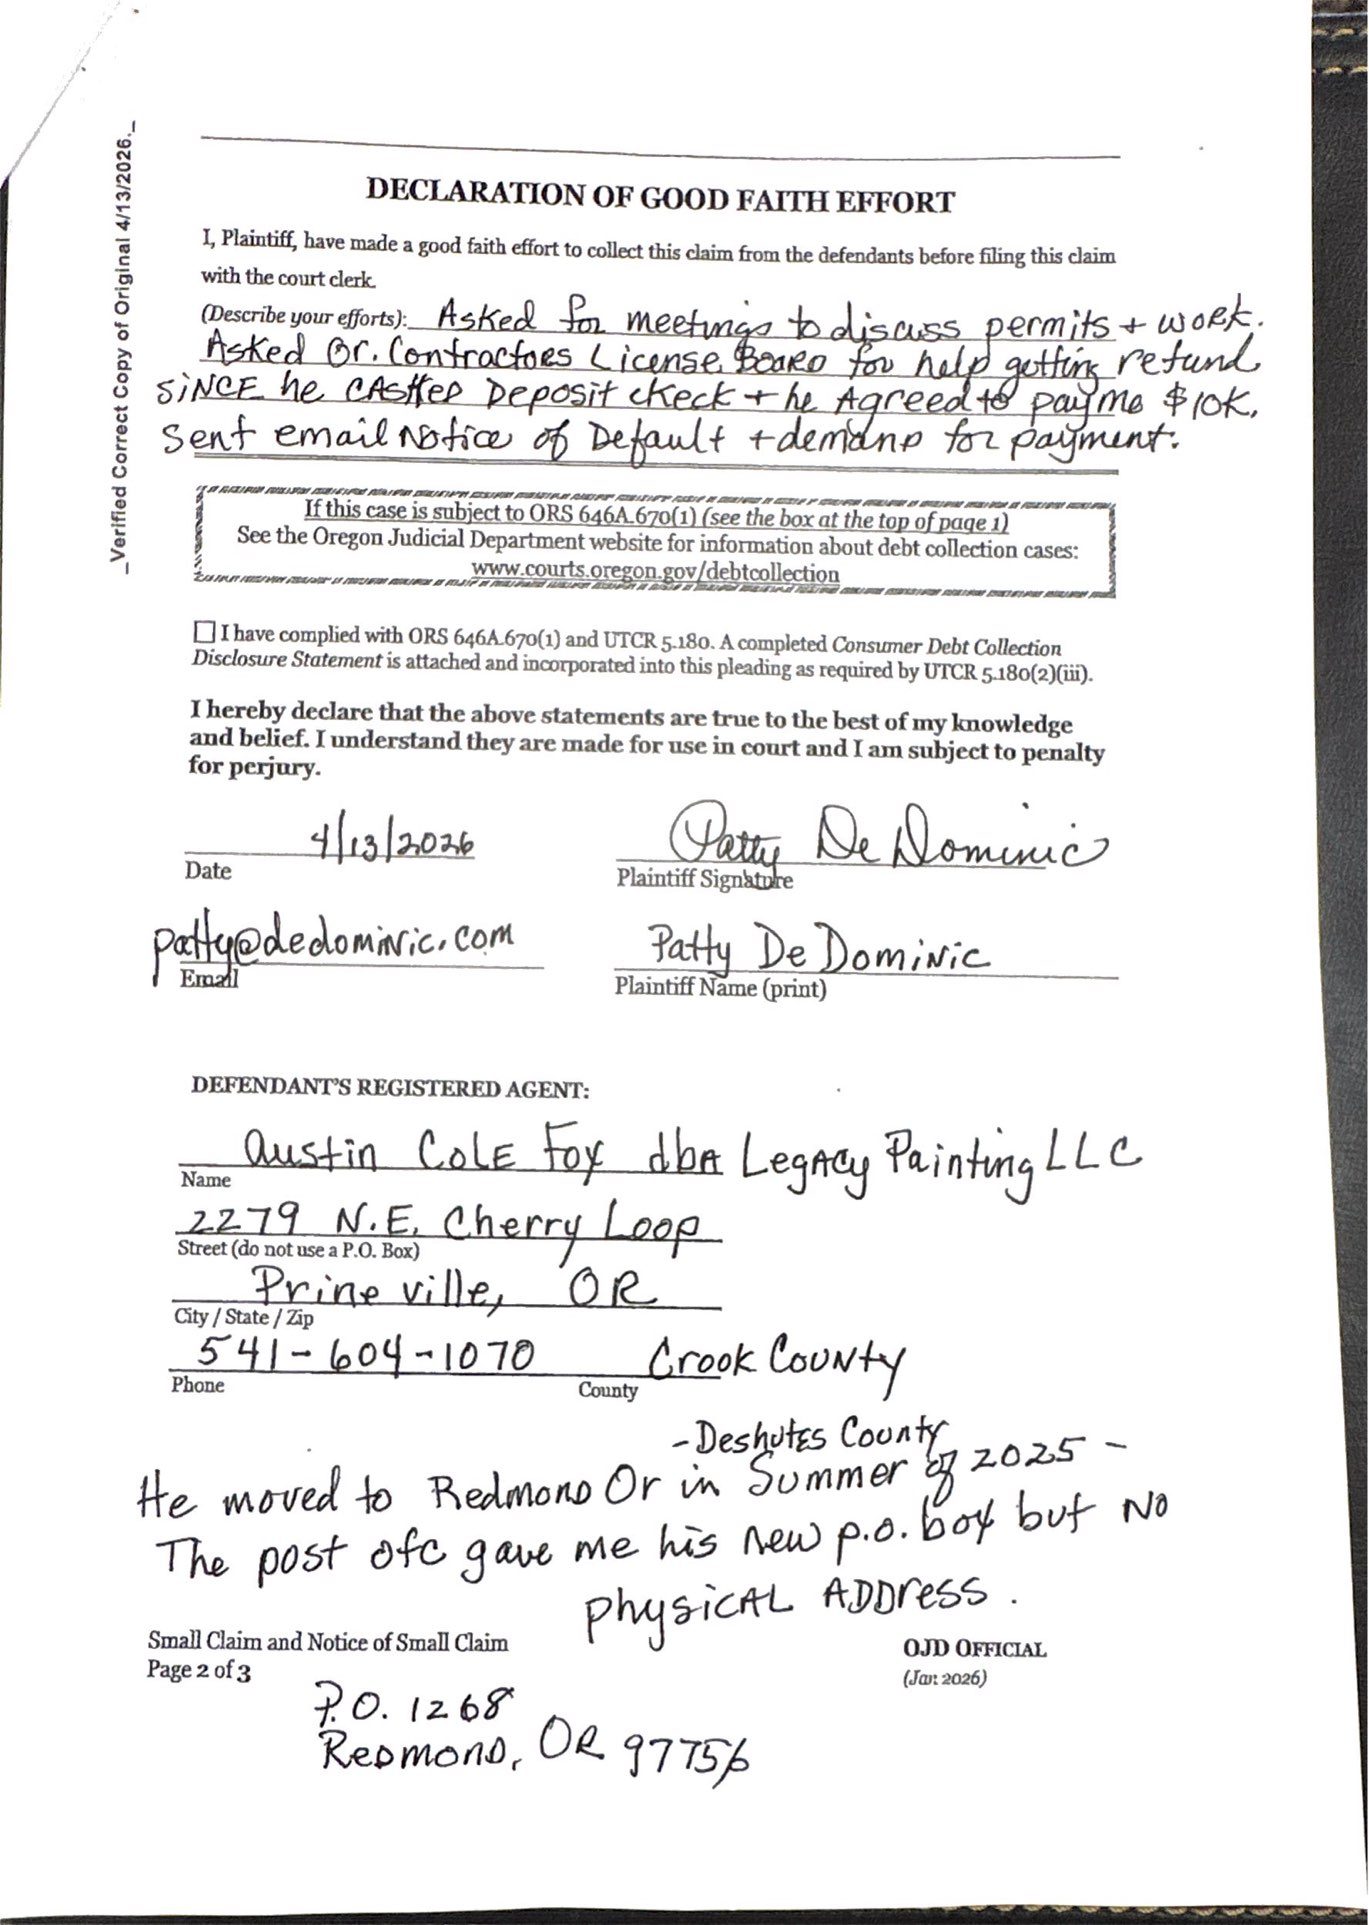 _Verified Correct Copy of Original 4/13/2026._
DECLARATION OF GOOD FAITH EFFORT
I, Plaintiff, have made a good faith effort to collect this claim from the defendants before filing this claim
with the court clerk.
(Describe your efforts): Asked for meetings to discuss permits + work.
Asked Or. Contractors License Board for help getting refund
SINCE he CASHED Deposit check + he Agreed to pay me $10K.
Sent email Notice of Default + demand for payment.
If this case is subject to ORS 646A.670(1) (see the box at the top of page 1)
See the Oregon Judicial Department website for information about debt collection cases:
www.courts.oregon.gov/debtcollection
☐ I have complied with ORS 646A.670(1) and UTCR 5.180. A completed Consumer Debt Collection
Disclosure Statement is attached and incorporated into this pleading as required by UTCR 5.180(2)(iii).
I hereby declare that the above statements are true to the best of my knowledge
and belief. I understand they are made for use in court and I am subject to penalty
for perjury.
4/13/2026 Patty De Dominic
Date Plaintiff Signature
patty@dedominic.com Patty De Dominic
Email Plaintiff Name (print)
DEFENDANT'S REGISTERED AGENT:
Austin Cole Fox dba Legacy Painting LLC
Name
2279 N.E. Cherry Loop
Street (do not use a P.O. Box)
Prineville, OR
City / State / Zip
541-604-1070 Crook County
Phone County
- Deshutes County
He moved to Redmond Or in Summer of 2025 -
The post ofc gave me his new p.o. box but No
physical Address.
Small Claim and Notice of Small Claim OJD OFFICIAL
Page 2 of 3 (Jan 2026)
P.O. 1268
Redmond, OR 97756